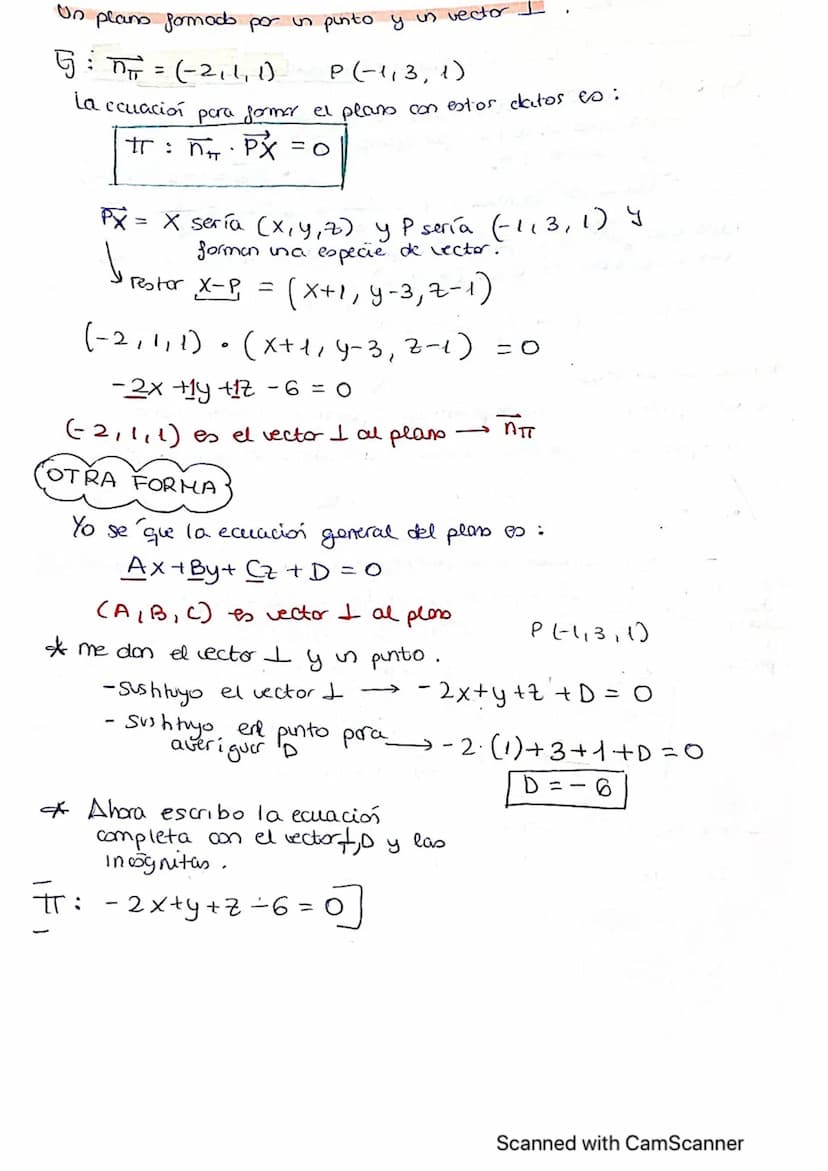 Un plano formado por un punto y un vector ⊥.
Ej: n⃗π = (-2,1,1) P(-1,3,1)
La ecuación para formar el plano con estos datos es:
π : n⃗π · P⃗X = 0
P⃗X = X sería (x,y,z) y P sería (-1,3,1) y
forman una especie de vector.
↳ restar X-P = (x+1, y-3, z-1)
(-2,1,1) · (x+1, y-3, z-1) = 0
-2x +1y +1z - 6 = 0
(-2,1,1) es el vector ⊥ al plano → n⃗π
OTRA FORMA
Yo se que la ecuación general del plano es:
Ax+By+Cz+D=0
(A,B,C) es vector ⊥ al plano
P(-1,3,1)
* me dan el vector ⊥ y un punto.
-Sustituyo el vector ⊥ → -2x+y+z+D=0
- Sustituyo en el punto para → -2·(1)+3+1+D=0
averiguar D
D=-6
* Ahora escribo la ecuación
completa con el vector ⊥, D y las
incógnitas.
π: -2x+y+z-6=0
Scanned with CamScanner